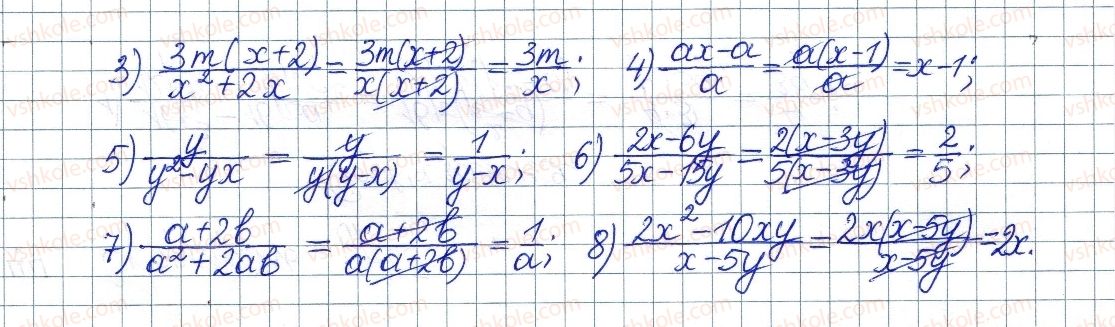 3) \frac{3m(x+2)}{x^2+2x} = \frac{3m(x+2)}{x(x+2)} = \frac{3m}{x}; 4) \frac{ax-a}{a} = \frac{a(x-1)}{a} = x-1;
5) \frac{y}{y^2-yx} = \frac{y}{y(y-x)} = \frac{1}{y-x}; 6) \frac{2x-6y}{5x-15y} = \frac{2(x-3y)}{5(x-3y)} = \frac{2}{5};
7) \frac{a+2b}{a^2+2ab} = \frac{a+2b}{a(a+2b)} = \frac{1}{a}; 8) \frac{2x^2-10xy}{x-5y} = \frac{2x(x-5y)}{x-5y} = 2x.
vshkole.com